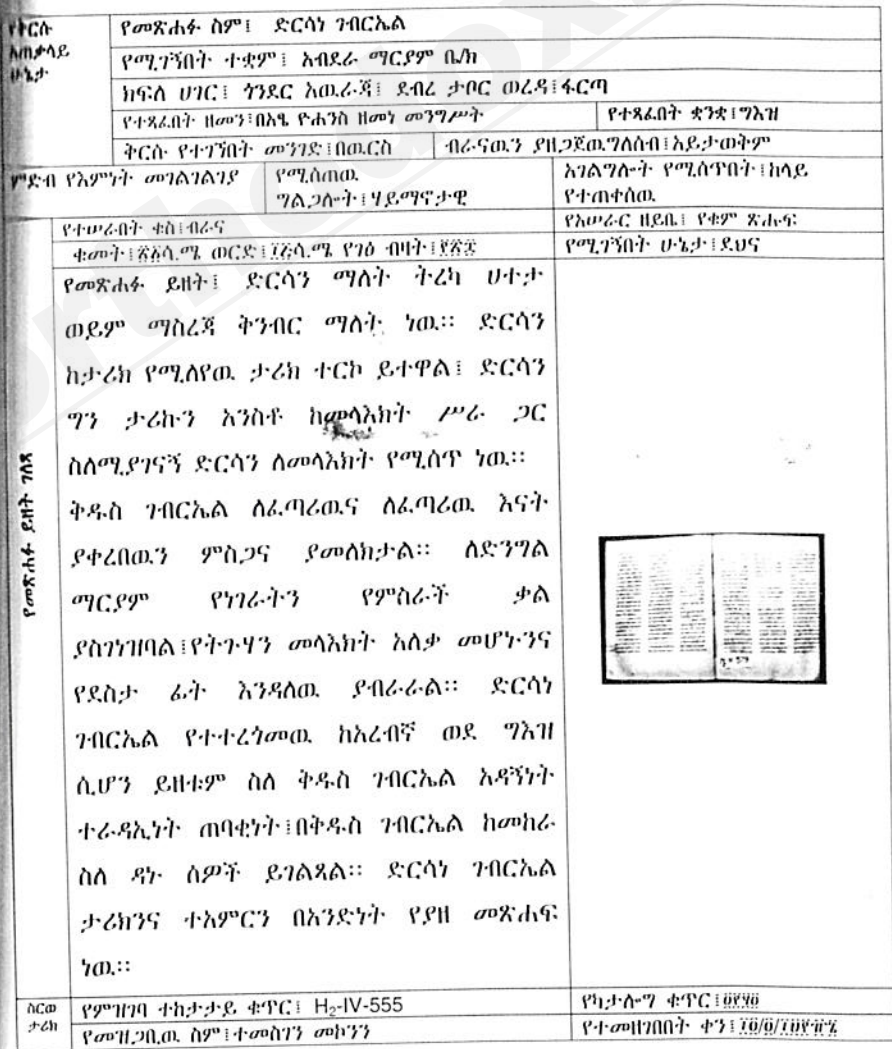 የቅርሱ አጠቃላይ ሁኔታ
የመጽሐፉ ስም፤ ድርሳነ ገብርኤል
የሚገኝበት ተቋም፤ አብደራ ማርያም ቤ/ክ
ክፍለ ሀገር፤ ጎንደር አዉራጃ፤ ደብረ ታቦር ወረዳ፤ፋርጣ
የተጻፈበት ዘመን፤በአፄ ዮሐንስ ዘመነ መንግሥት የተጻፈበት ቋንቋ፤ግእዝ
ቅርሱ የተገኘበት መንገድ፤በዉርስ ብራናዉን ያዘጋጀዉግለሰብ፤አይታወቅም
ምድብ የእምነት መገልገልገያ የሚሰጠዉ ግልጋሎት፤ሃይማኖታዊ አገልግሎት የሚሰጥበት፤ከላይ የተጠቀሰዉ
የተሠራበት ቁስ፤ብራና የአሠራር ዘይቤ፤ የቁም ጽሑፍ
ቁመት፤ ሳ.ሜ ወርድ፤ ሳ.ሜ የገፅ ብዛት፤ የሚገኝበት ሁኔታ፤ደህና
የመጽሐፉ ይዘት ገለጻ
የመጽሐፉ ይዘት፤ ድርሳን ማለት ትረካ ሀተታ
ወይም ማስረጃ ቅንብር ማለት ነዉ። ድርሳን
ከታሪክ የሚለየዉ ታሪክ ተርኮ ይተዋል፤ ድርሳን
ግን ታሪኩን አንስቶ ከመላእክት ሥራ ጋር
ስለሚያገናኝ ድርሳን ለመላእክት የሚሰጥ ነዉ።
ቅዱስ ገብርኤል ለፈጣሪዉና ለፈጣሪዉ እናት
ያቀረበዉን ምስጋና ያመለክታል። ለድንግል
ማርያም የነገራትን የምስራች ቃል
ያስገነዝባል፤የትጉሃን መላእክት አለቃ መሆኑንና
የደስታ ፊት እንዳለዉ ያብራራል። ድርሳነ
ገብርኤል የተተረጎመዉ ከአረብኛ ወደ ግእዝ
ሲሆን ይዘቱም ስለ ቅዱስ ገብርኤል አዳኝነት
ተራዳኢነት ጠባቂነት፤በቅዱስ ገብርኤል ከመከራ
ስለ ዳኑ ሰዎች ይገልጻል። ድርሳነ ገብርኤል
ታሪክንና ተአምርን በአንድነት የያዘ መጽሐፍ
ነዉ።
ስርወ ታሪክ
የምዝገባ ተከታታይ ቁጥር፤ H₂-IV-555 የካታሎግ ቁጥር፤
የመዝጋቢዉ ስም፤ተመስገን መኮንን የተመዘገበበት ቀን፤